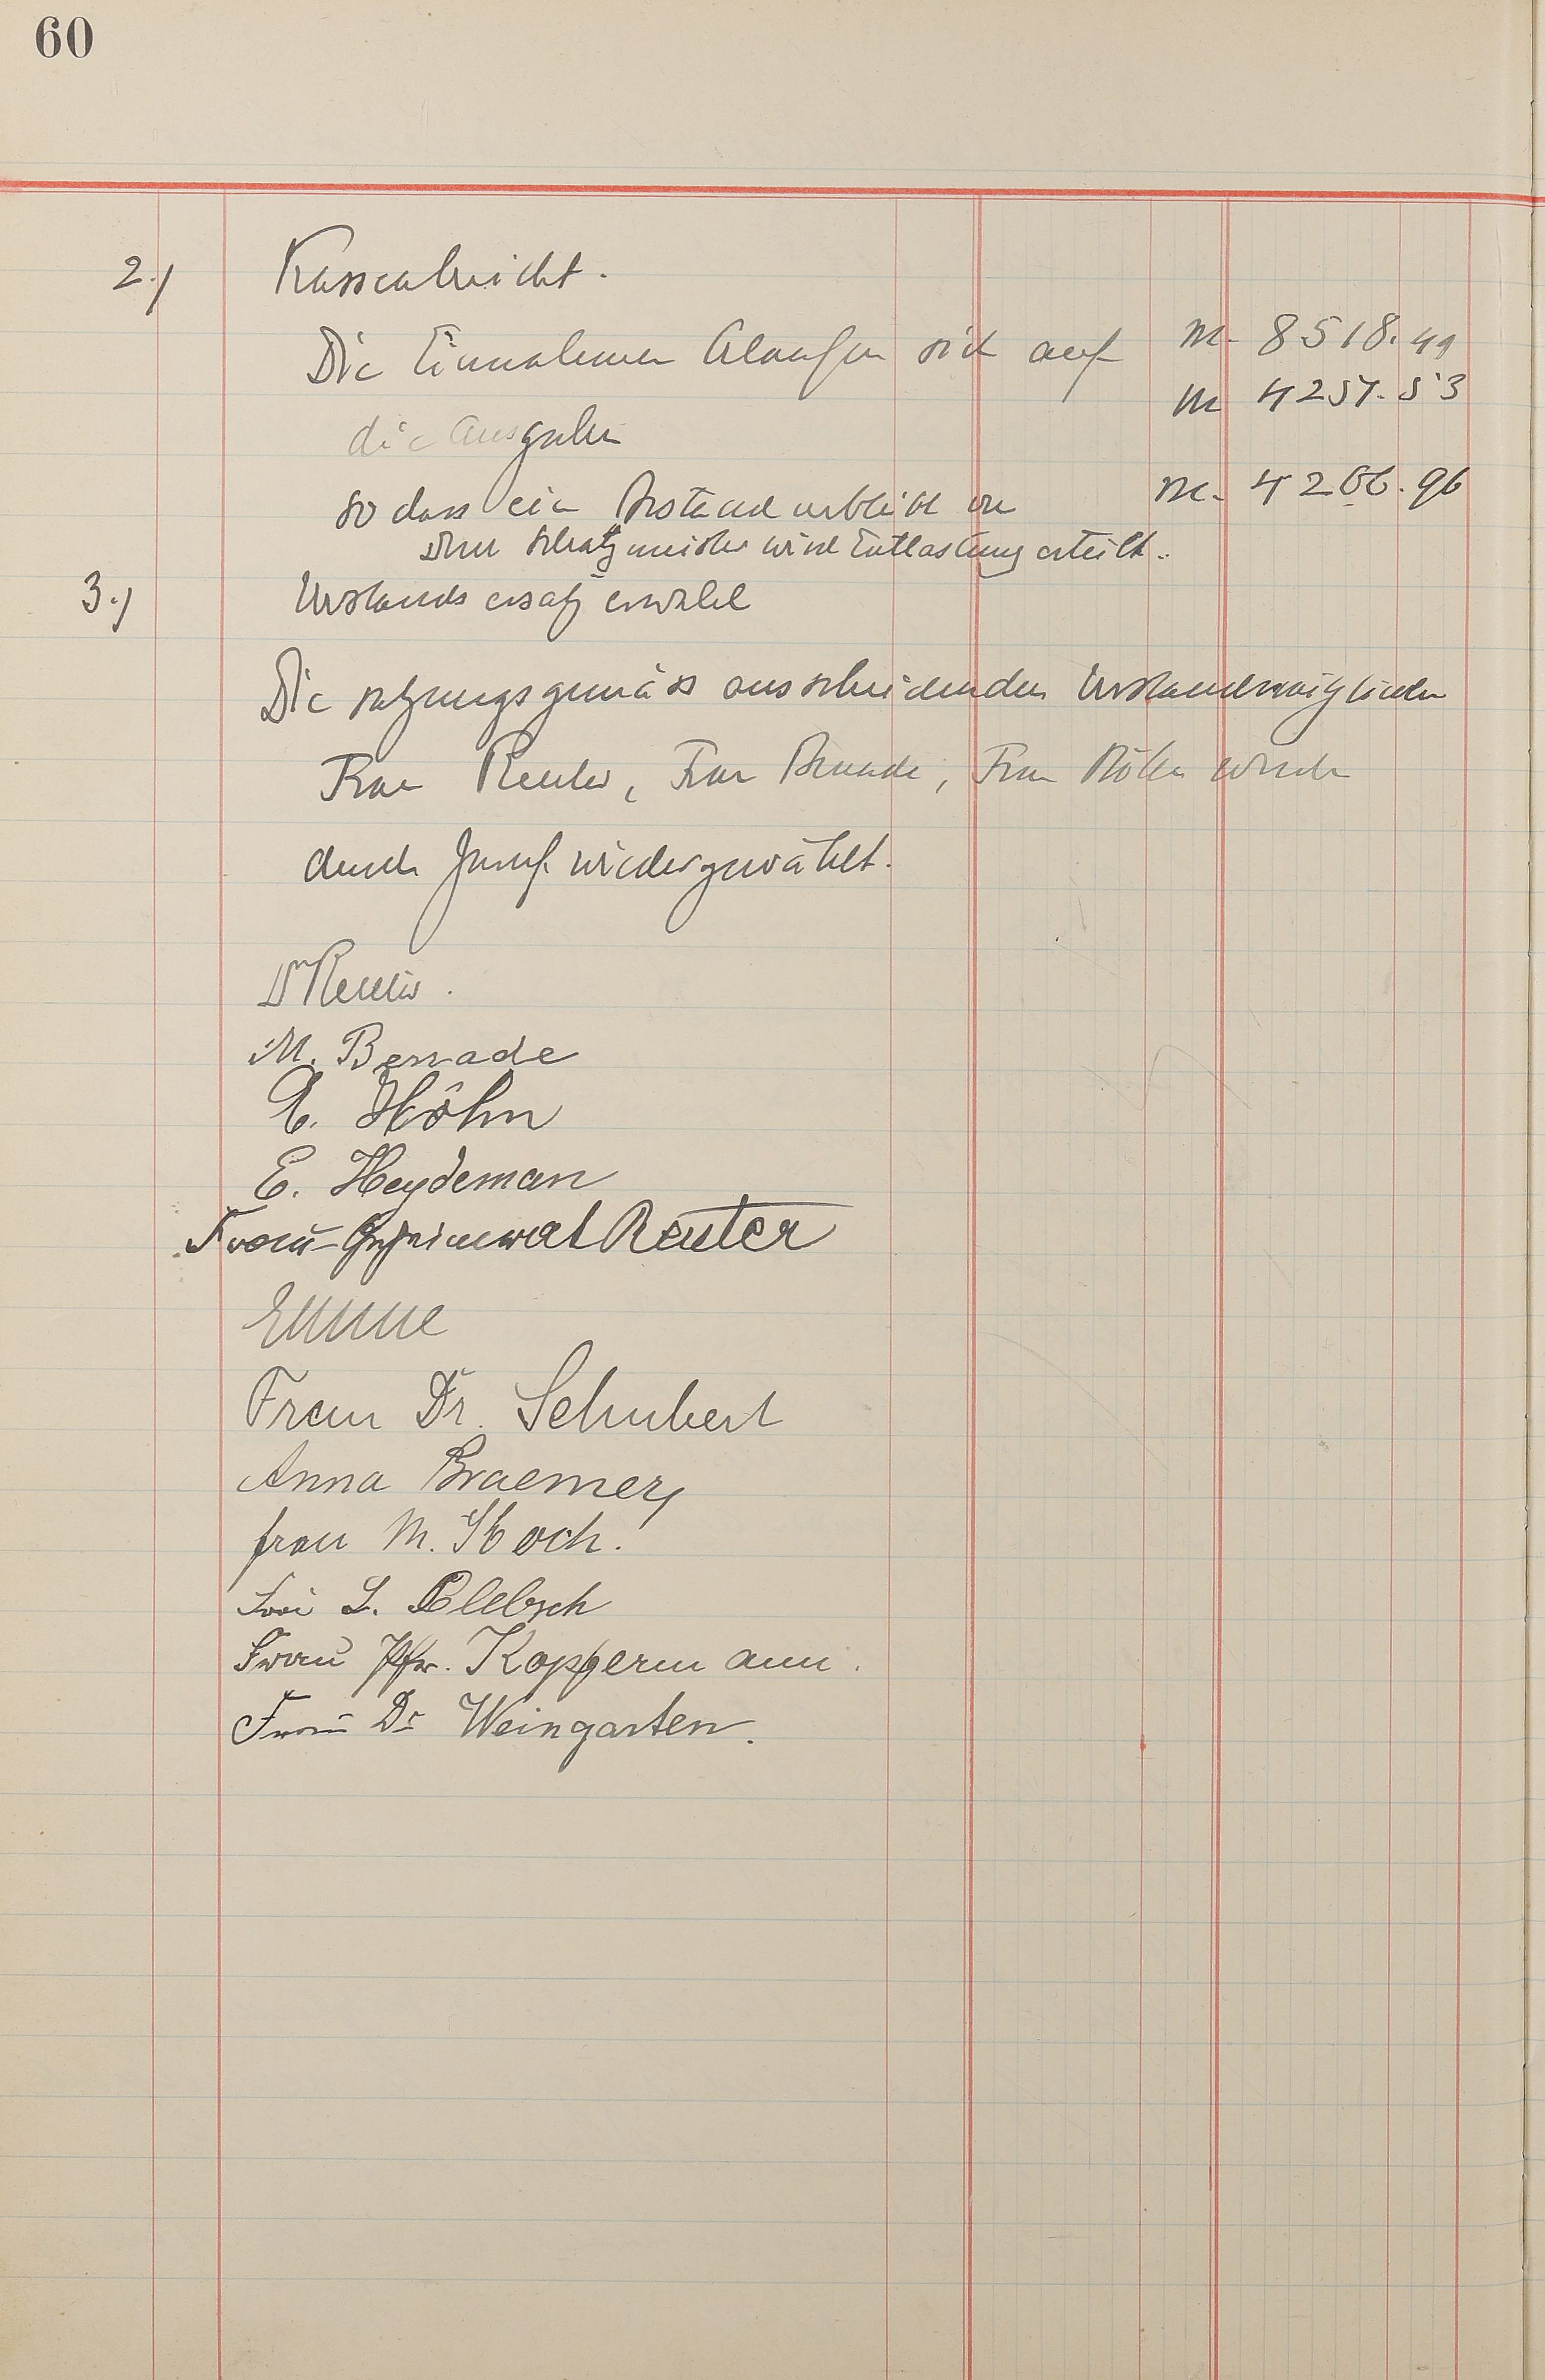 60
2.) Kassenbericht.
Die Einnahmen belaufen sich auf M. 8518.49
die Ausgaben M 4251.53
so dass ein Bestand verbleibt von M. 4266.96
dem Schatzmeister wird Entlastung erteilt.
3.) Vorstandsersatzwahl
Die satzungsgemäss ausscheidenden Vorstandmitglieder
Frau Reuter, Frau Frau wurden
durch Zuruf wiedergewählt.
Dr Reuter.
M. Bernade
E. Höhn
E. Heydeman
Frau Geheimrat Reuter
Frau Dr. Schubert
Anna Braemer
frau M. Koch.
L. Klebsch
Frau Pfr. Koppermann.
Frau Dr Weingarten.